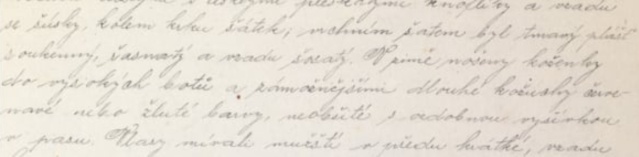 s lesklými plískovými knoflíky a vzadu
se šůsky, kolem krku šátek; vrchním šatem byl tmavý plášť
soukenný, šasnatý a vzadu šosatý. V zimě nošeny koženky
do vysokých botů a zámožnějšími dlouhé kožichy červe-
navé nebo žluté barvy, neobšité s ozdobnou vyšívkou
v pasu. Vlasy mívali mužští v předu krátké, vzadu